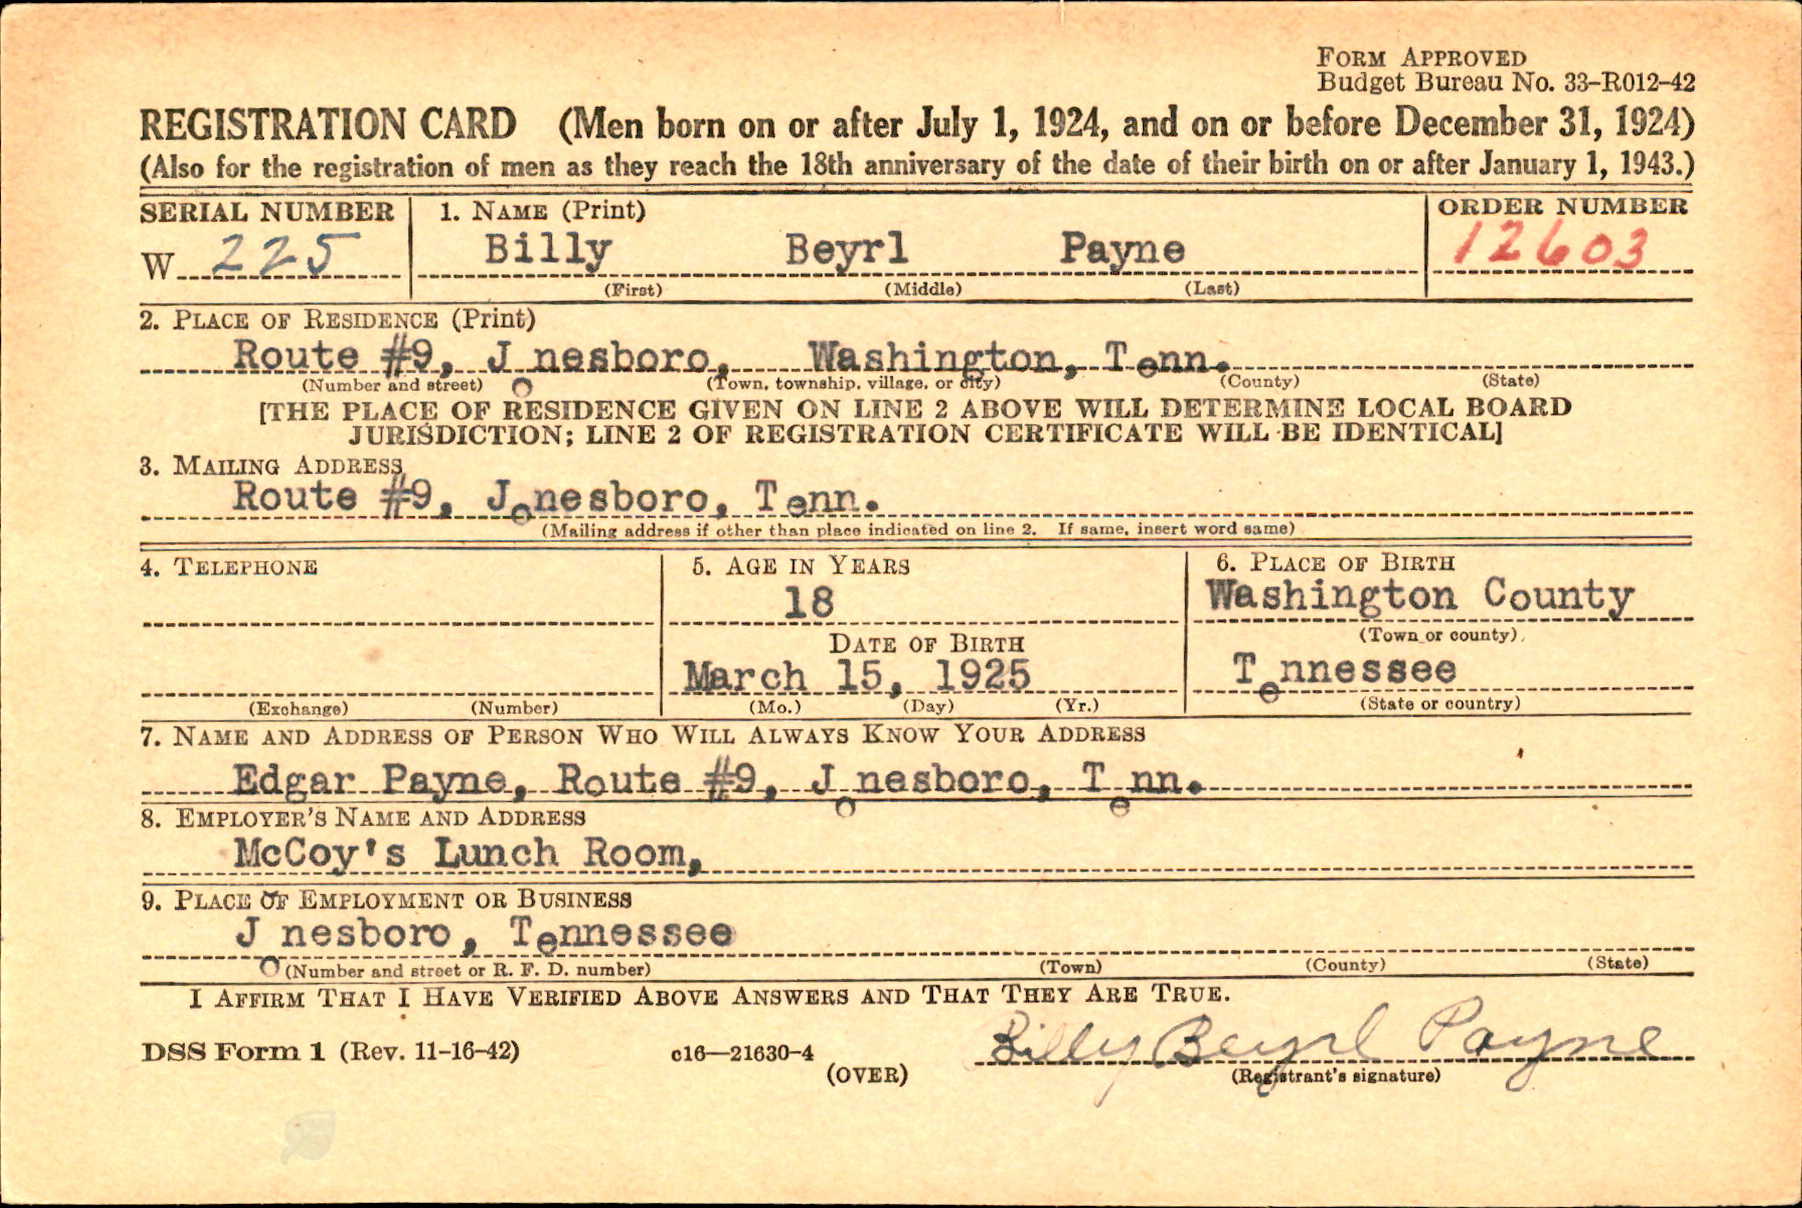 FORM APPROVED
Budget Bureau No. 33-R012-42
REGISTRATION CARD (Men born on or after July 1, 1924, and on or before December 31, 1924)
(Also for the registration of men as they reach the 18th anniversary of the date of their birth on or after January 1, 1943.)
SERIAL NUMBER 1. NAME (Print) ORDER NUMBER
W 225 Billy Beyrl Payne 12603
(First) (Middle) (Last)
2. PLACE OF RESIDENCE (Print)
Route #9, Jonesboro, Washington, Tenn.
(Number and street) (Town, township, village, or city) (County) (State)
[THE PLACE OF RESIDENCE GIVEN ON LINE 2 ABOVE WILL DETERMINE LOCAL BOARD
JURISDICTION; LINE 2 OF REGISTRATION CERTIFICATE WILL BE IDENTICAL]
3. MAILING ADDRESS
Route #9, Jonesboro, Tenn.
(Mailing address if other than place indicated on line 2. If same, insert word same)
4. TELEPHONE 5. AGE IN YEARS 6. PLACE OF BIRTH
18 Washington County
DATE OF BIRTH (Town or county)
March 15, 1925 Tennessee
(Exchange) (Number) (Mo.) (Day) (Yr.) (State or country)
7. NAME AND ADDRESS OF PERSON WHO WILL ALWAYS KNOW YOUR ADDRESS
Edgar Payne, Route #9, Jonesboro, Tenn.
8. EMPLOYER'S NAME AND ADDRESS
McCoy's Lunch Room,
9. PLACE OF EMPLOYMENT OR BUSINESS
Jonesboro, Tennessee
(Number and street or R. F. D. number) (Town) (County) (State)
I AFFIRM THAT I HAVE VERIFIED ABOVE ANSWERS AND THAT THEY ARE TRUE.
DSS Form 1 (Rev. 11-16-42) c16—21630-4 Billy Beyrl Payne
(OVER) (Registrant's signature)